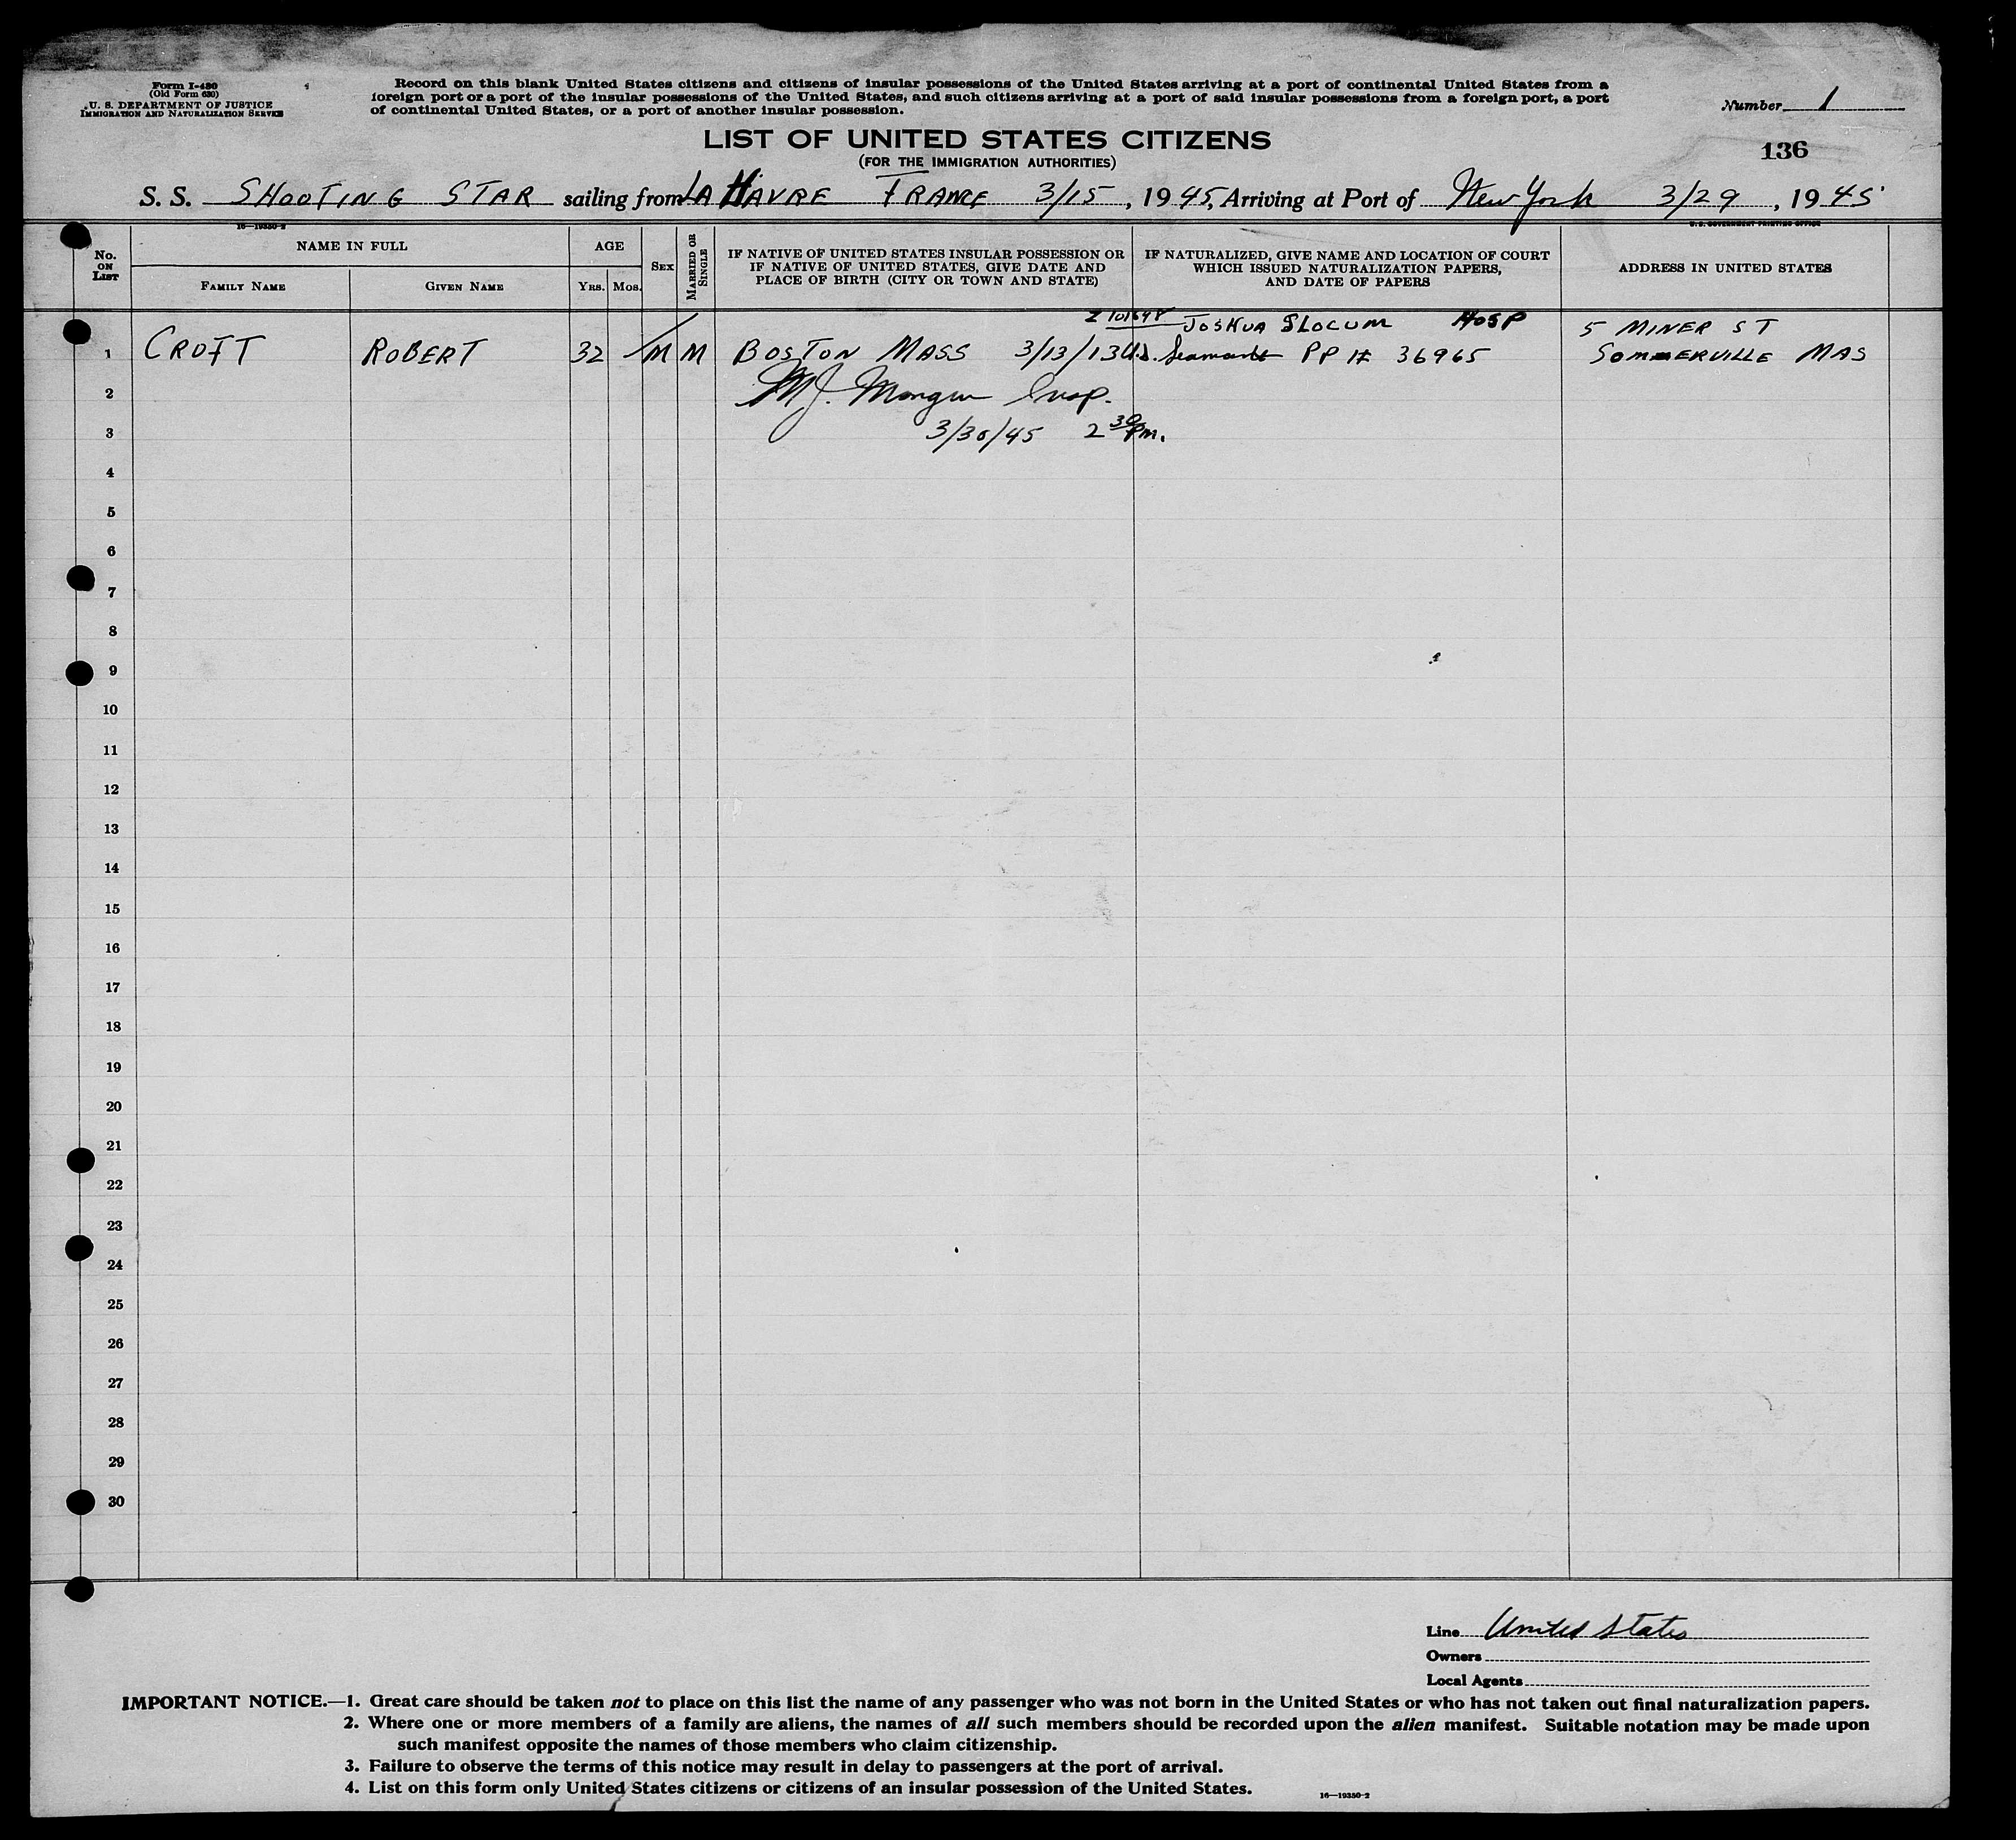 Form I-430
(Old Form 630)
U. S. DEPARTMENT OF JUSTICE
IMMIGRATION AND NATURALIZATION SERVICE
Record on this blank United States citizens and citizens of insular possessions of the United States arriving at a port of continental United States from a
foreign port or a port of the insular possessions of the United States, and such citizens arriving at a port of said insular possessions from a foreign port, a port
of continental United States, or a port of another insular possession.
Number 1
136
LIST OF UNITED STATES CITIZENS
(FOR THE IMMIGRATION AUTHORITIES)
S. S. SHOOTING STAR sailing from LA HAVRE FRANCE 3/15, 1945, Arriving at Port of New York 3/29, 1945
16—19350-2
U. S. GOVERNMENT PRINTING OFFICE
No. ON LIST
NAME IN FULL
FAMILY NAME
GIVEN NAME
AGE
YRS.
MOS.
SEX
MARRIED OR SINGLE
IF NATIVE OF UNITED STATES INSULAR POSSESSION OR
IF NATIVE OF UNITED STATES, GIVE DATE AND
PLACE OF BIRTH (CITY OR TOWN AND STATE)
IF NATURALIZED, GIVE NAME AND LOCATION OF COURT
WHICH ISSUED NATURALIZATION PAPERS,
AND DATE OF PAPERS
ADDRESS IN UNITED STATES
JOSHUA SLOCUM HOSP 5 MINER ST
1 CROFT ROBERT 32 M M BOSTON MASS 3/13/13 U.S. Seamans PP # 36965 SOMMERVILLE MAS
2 M.J. Insp.
3 3/30/45 2 30 P.m.
4
5
6
7
8
9
10
11
12
13
14
15
16
17
18
19
20
21
22
23
24
25
26
27
28
29
30
Line United States
Owners
Local Agents
IMPORTANT NOTICE.—1. Great care should be taken not to place on this list the name of any passenger who was not born in the United States or who has not taken out final naturalization papers.
2. Where one or more members of a family are aliens, the names of all such members should be recorded upon the alien manifest. Suitable notation may be made upon
such manifest opposite the names of those members who claim citizenship.
3. Failure to observe the terms of this notice may result in delay to passengers at the port of arrival.
4. List on this form only United States citizens or citizens of an insular possession of the United States.
16—19350-2